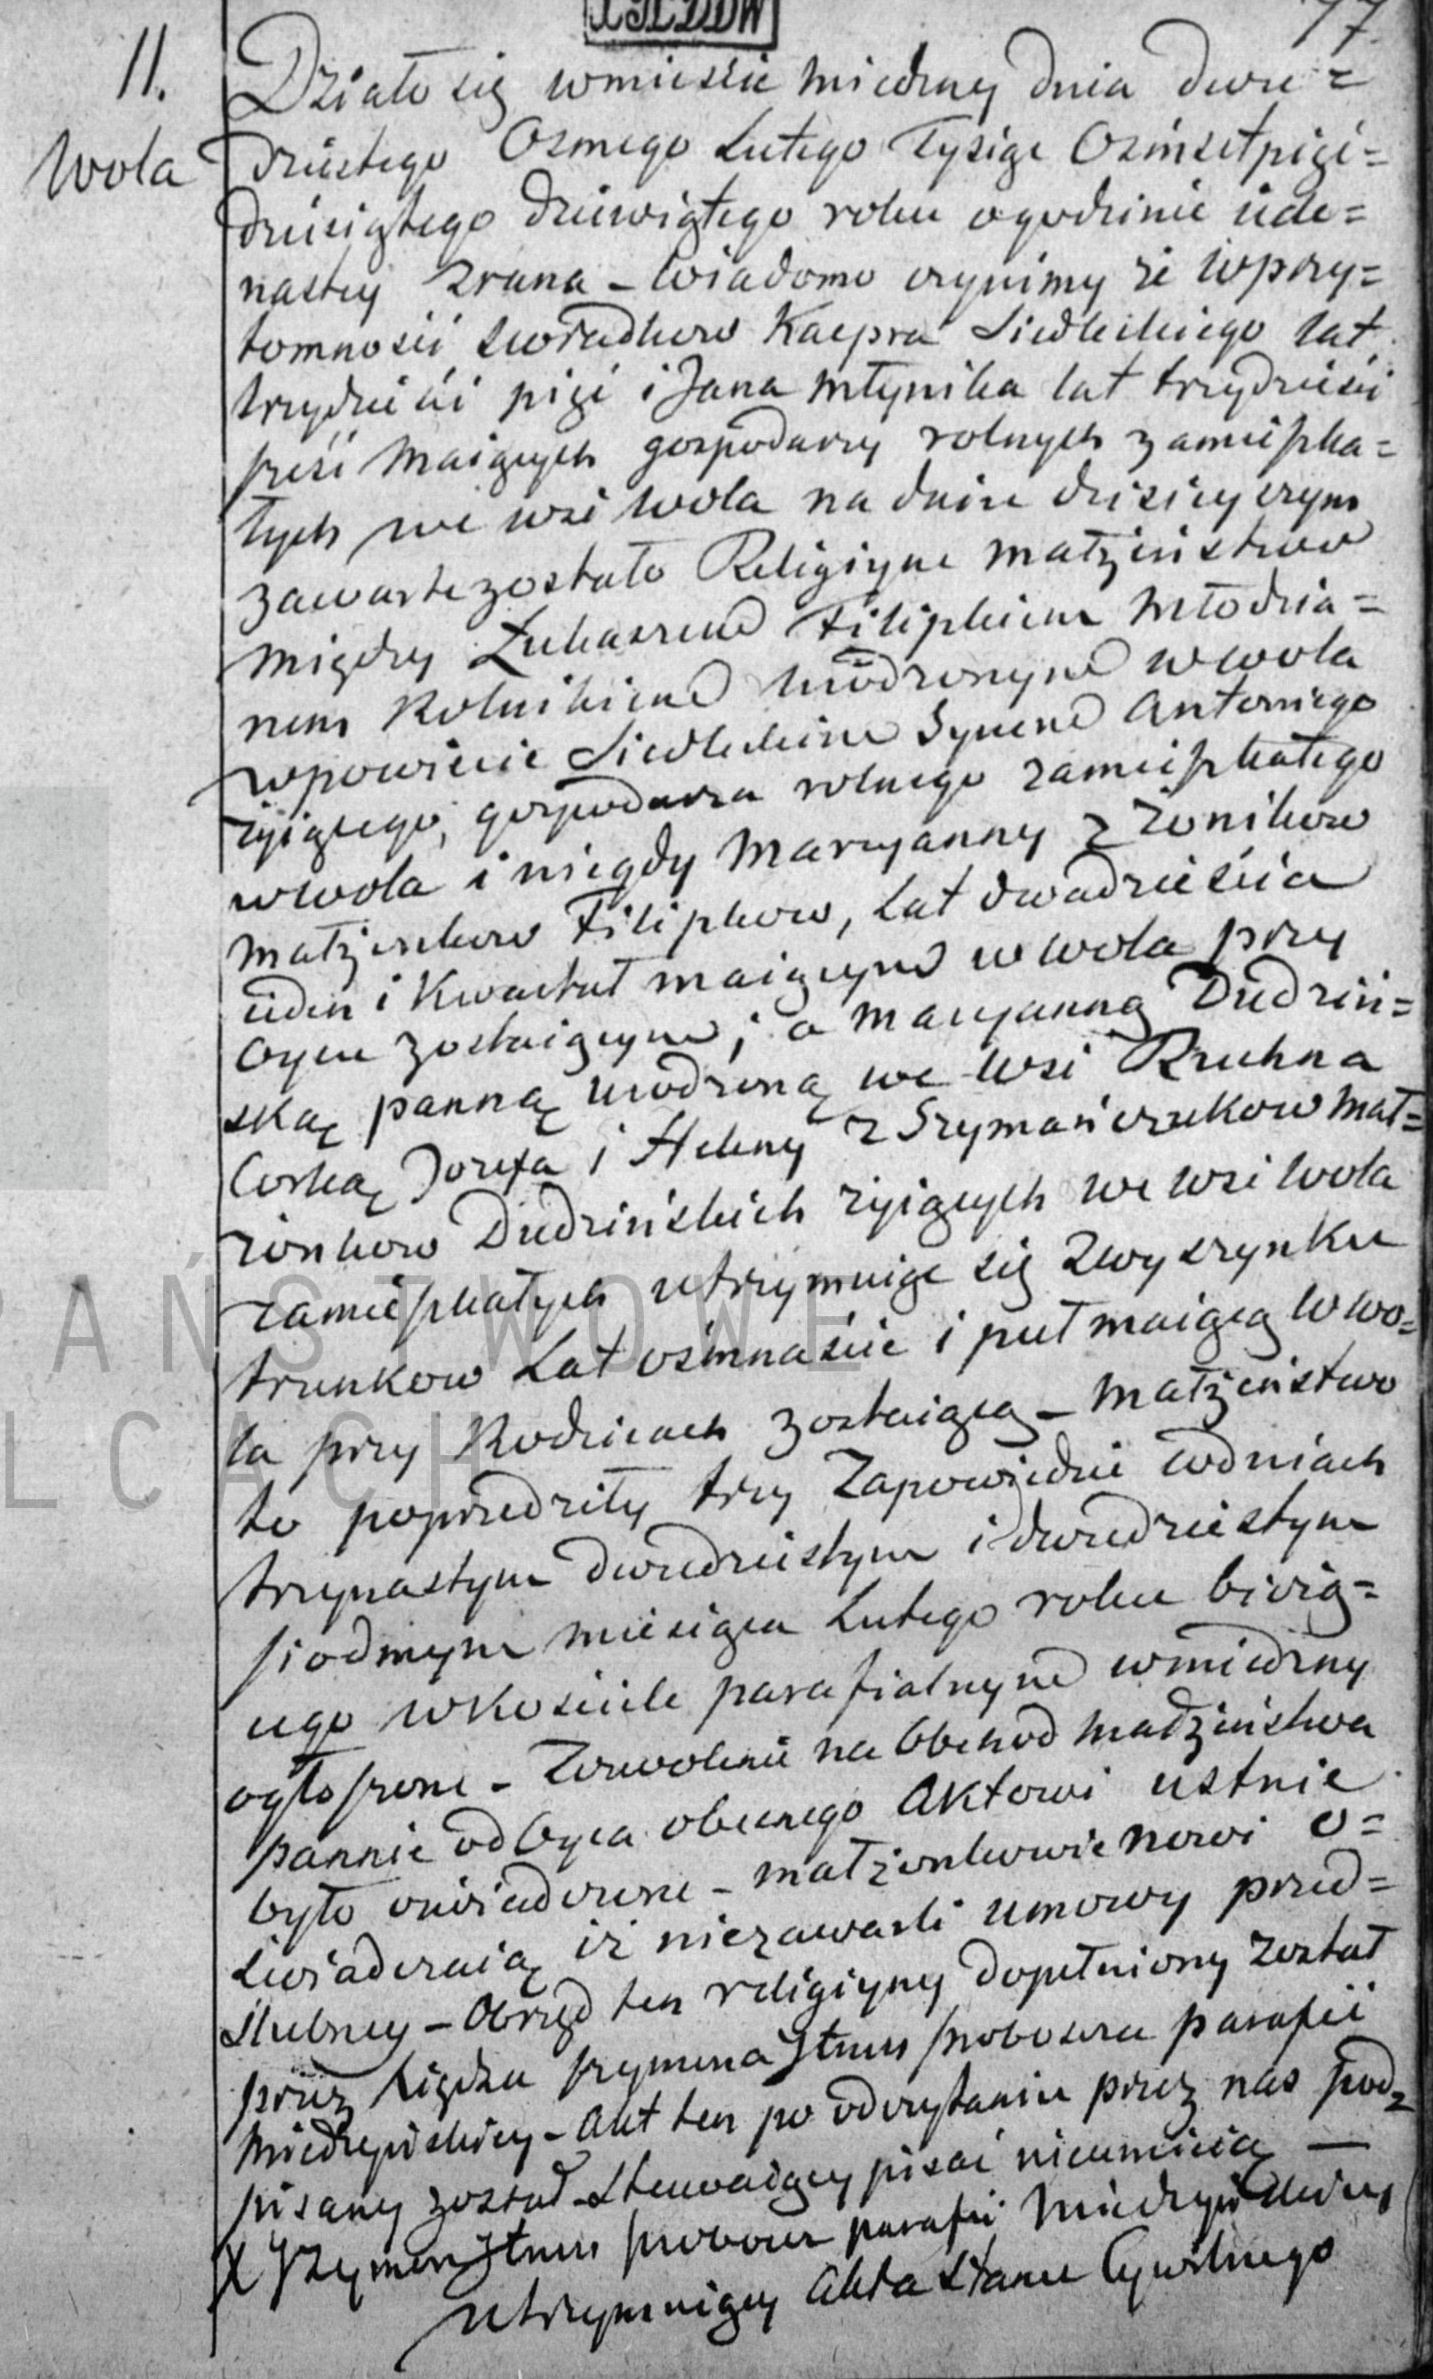 11.
Wola
Działo się w mieście Miedzny dnia dwu=
dziestego Osmego Lutego Tysiąc Ośmsetpięć=
dziesiątego dziewiątego roku o godzinie iede=
nastey zrana – Wiadomo czynimy że w przy=
tomności świadkow Kacpra Siedleckiego lat
trzydzieści pięć i Jana Młynika lat trzydzieści
sześć maiących gospodarzy rolnych zamieszka=
łych we wsi Wola na dniu dzisieyszym
zawarte zostało Religiyne małżeństwo
między Łukaszem Filipkiem Młodzia=
nem Rolnikiem urodzonym w Wola
w powiecie Siedleckim Synem Antoniego
żyiącego, gospodarza rolnego zamieszkałego
w Wola i niegdy Maryanny z
małżonkow Filipkow, Lat dwadzieścia
ieden i Kwartał maiącym w Wola przy
Oycu zostaiącym; a Maryanną Dudziń=
ską panną urodzoną we wsi Ruchna
Corką Jozefa i Heleny z Szymańczukow Mał=
żonkow Dudzińskich żyiących we wsi Wola
zamieszkałych utrzymuiąc się z wyszynku
trunkow Lat ośmnaście i puł maiącą w Wo=
la przy Rodzicach zostaiącą – Małżeństwo
to poprzedziły trzy Zapowiedzie w dniach
trzynastym dwudziestym i dwudziestym
siodmym miesiąca Lutego roku bieżą=
cego w Kościele parafialnym w Miedzny
ogłoszone – Zezwolenie na Obchod Małżeństwa
pannie od Oyca obecnego Aktowi ustnie
było oświadczone – Małżonkowie nowi o=
świadczaią iż niezawarli umowy przed=
ślubney – Obrzęd ten religiyny dopełniony został
przez Xiędza Szymona proboszcza parafii
Miedzyńskiey – Akt ten po odczytaniu przez nas pod=
pisany został – Stawaiący pisać nieumieią —
X Szymon proboszcz parafii Miedzyńskiey
utrzymuiący Akta Stanu Cywilnego
PAŃSTWOWE
LCACH